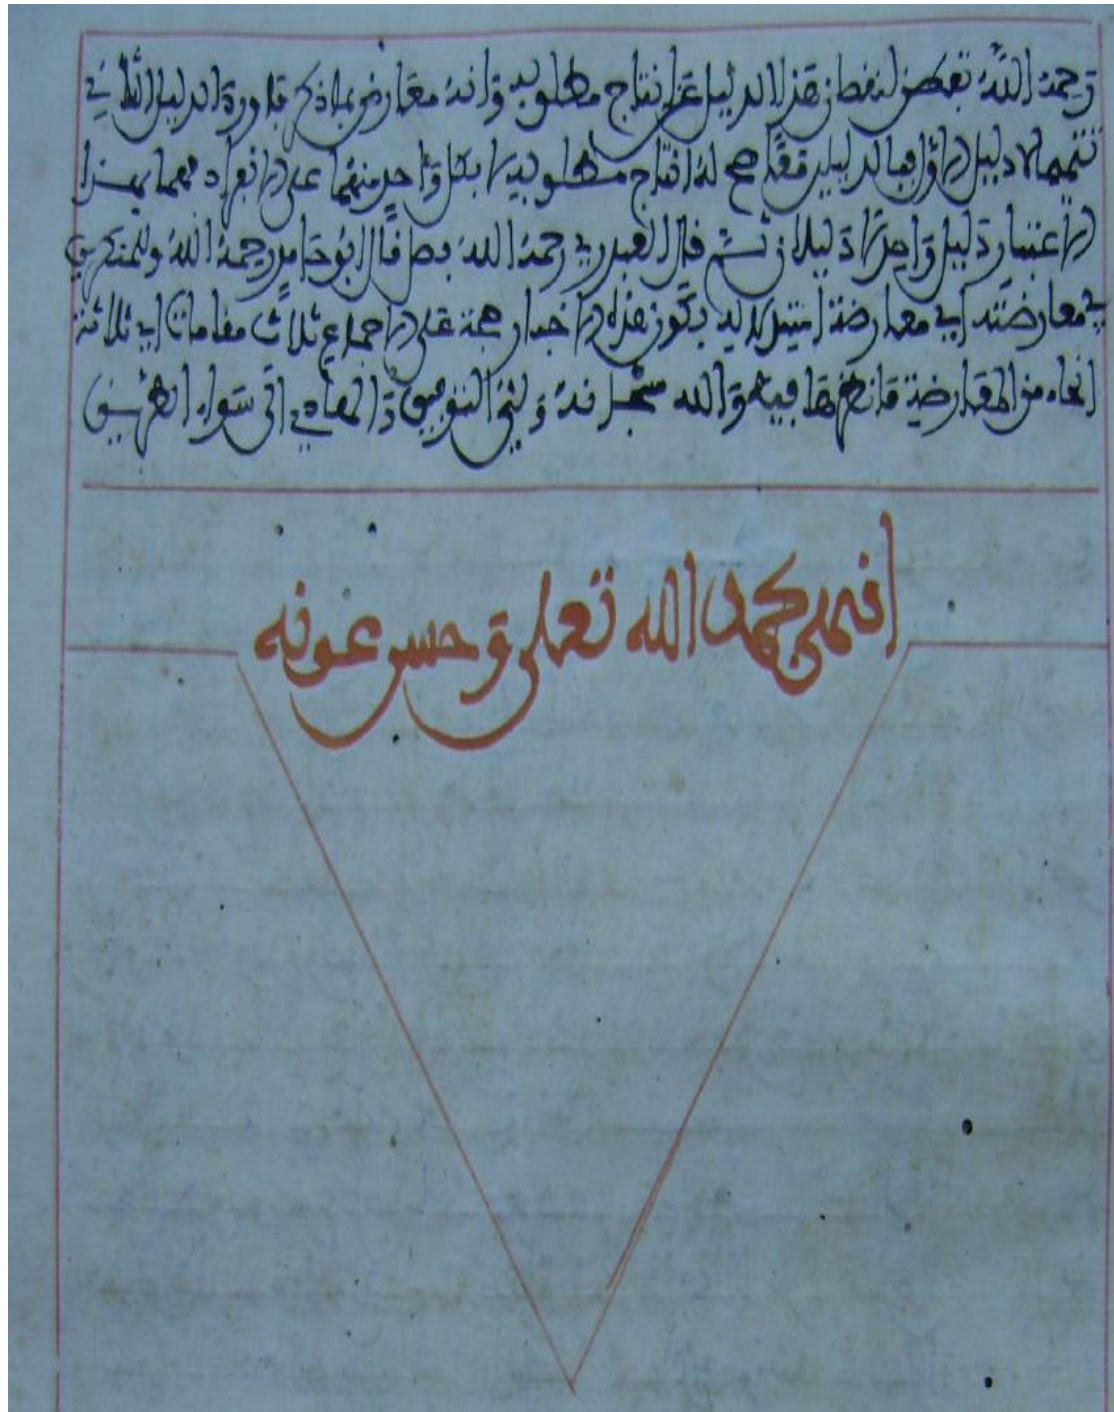 رحمه الله تفطن لنقصان هذا الدليل عن انتاج مطلوبه وانه معارض بما ذكر فاورد الدليل الثاني
تتميما لا دليل الاول فبالدليلين معا صح له انتاج مطلوبه لا بكل واحد منهما على الانفراد فهما بهذا
الاعتبار دليل واحد لا دليلان ثم قال العبدري رحمه الله فصل قال ابو حامد رحمه الله وللمنكرين
في معارضته اي معارضة
الاخبار حجة على الاجماع ثلاث مقامات اي ثلاثة
انحاء من المعارضة فانظرها فيه والله سبحانه ولي التوفيق والهادي الى سواء الطريق
انتهى بحمد الله تعلى وحسن عونه